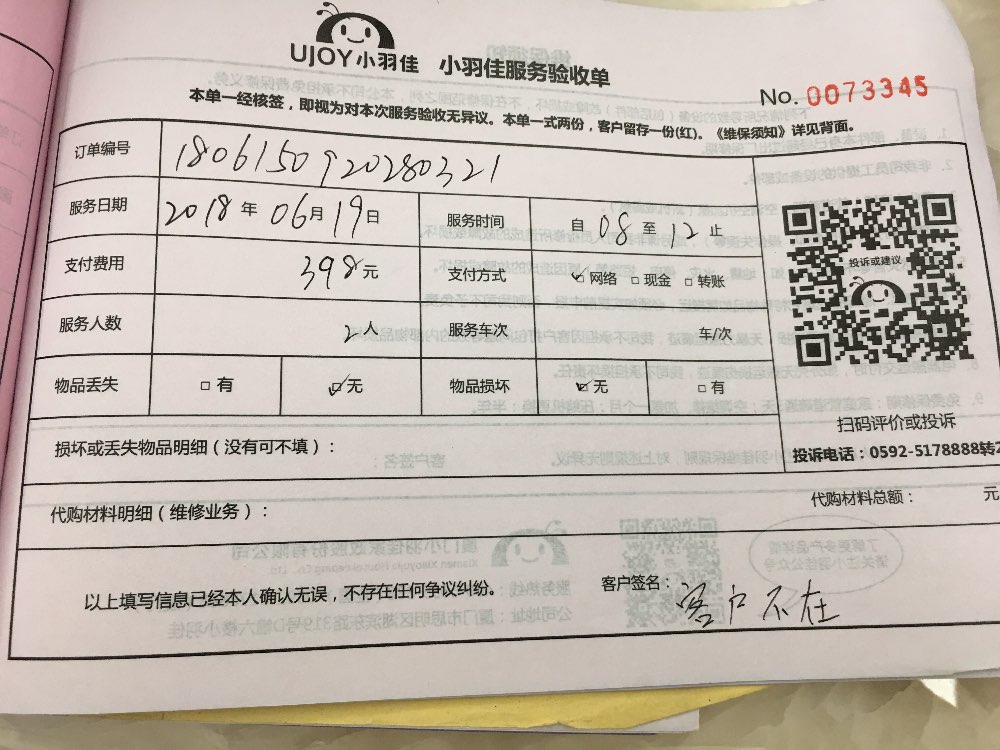 UJOY小羽佳 小羽佳服务验收单
No. 0073345
本单一经核签，即视为对本次服务验收无异议。本单一式两份，客户留存一份(红)。《维保须知》详见背面。
订单编号 1806150920280321
服务日期 2018年06月19日 服务时间 自08至12止
支付费用 398元 支付方式 ☑网络 □现金 □转账
服务人数 2人 服务车次 车/次
物品丢失 □有 ☑无 物品损坏 ☑无 □有
投诉或建议
扫码评价或投诉
投诉电话：0592-5178888转2
损坏或丢失物品明细（没有可不填）：
代购材料明细（维修业务）： 代购材料总额： 元
以上填写信息已经本人确认无误，不存在任何争议纠纷。 客户签名：客户不在